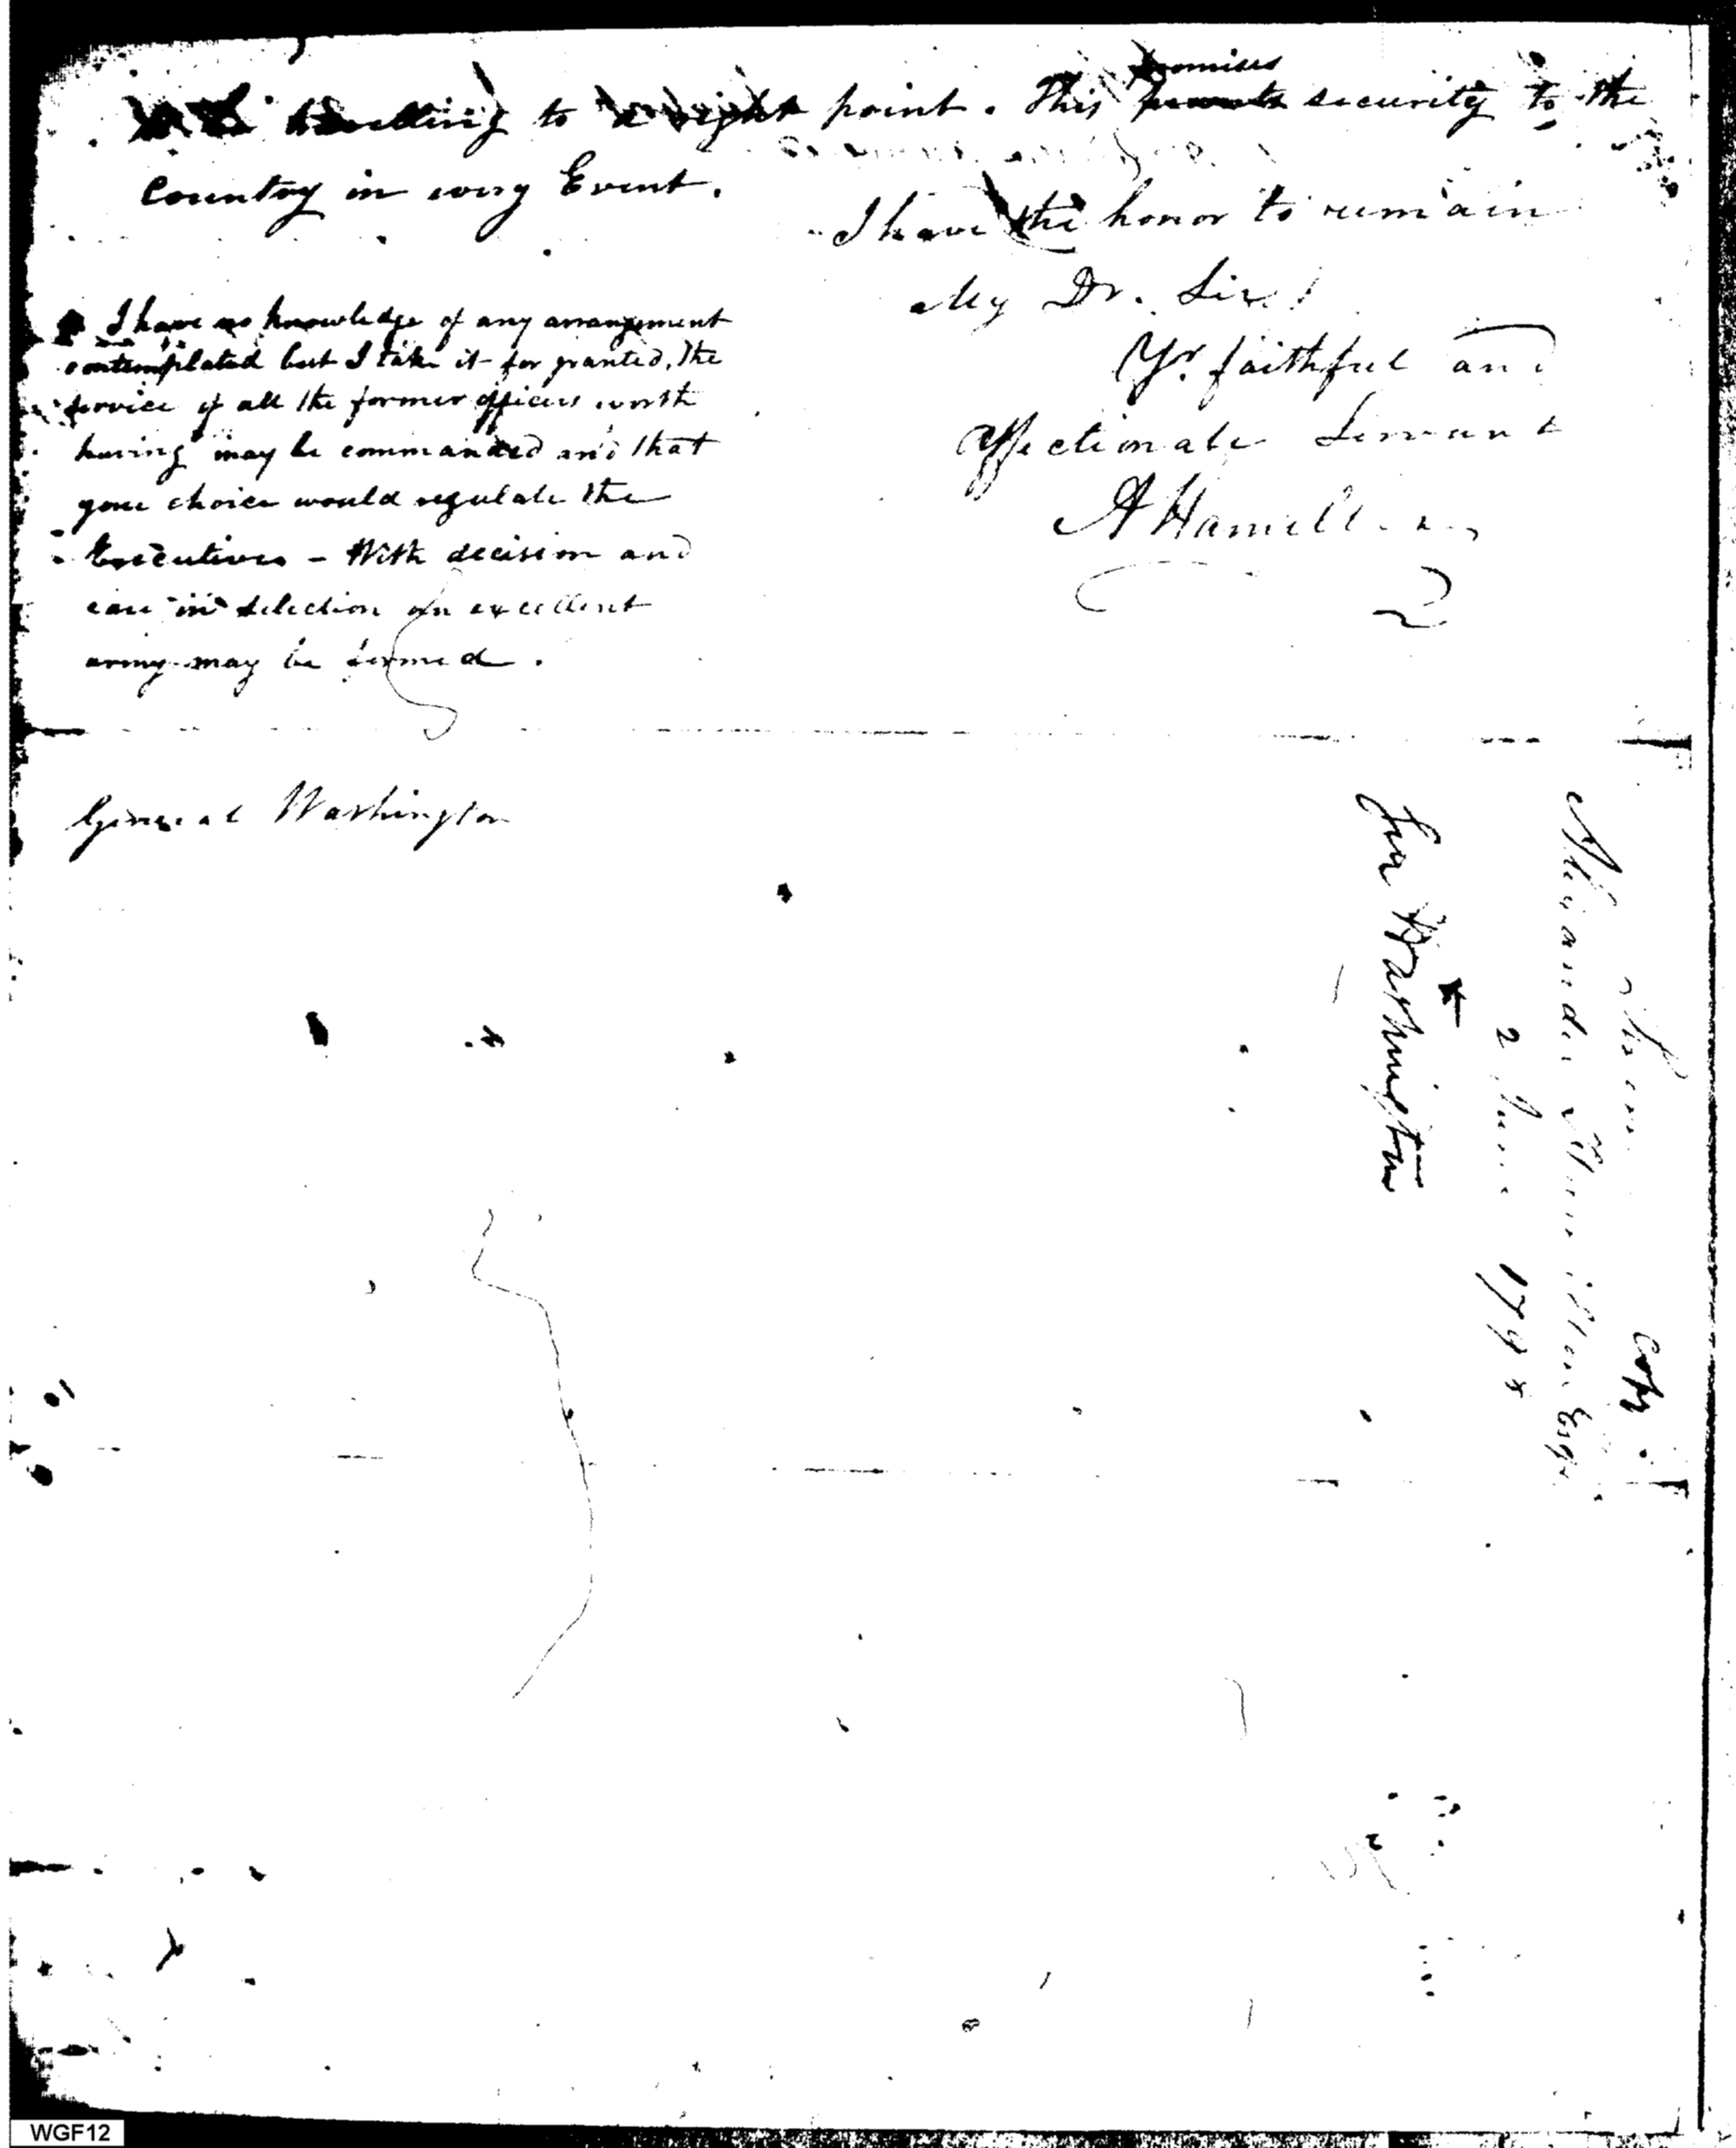 travelling to a right point. This promises presents security to the
Country in every Event.
I have the honor to remain
My Dr. Sir!
Yr. faithful and
Affectionate Servant
A Hamilton
I have no knowledge of any arrangement
contemplated but I take it for granted, the
service of all the former officers worth
having may be commanded and that
your choice would regulate the
Executive – With decision and
care in selection an excellent
army may be formed.
General Washington
From Copy.
Alexander Hamilton Esqr.
2 June 1798
Washington
WGF12